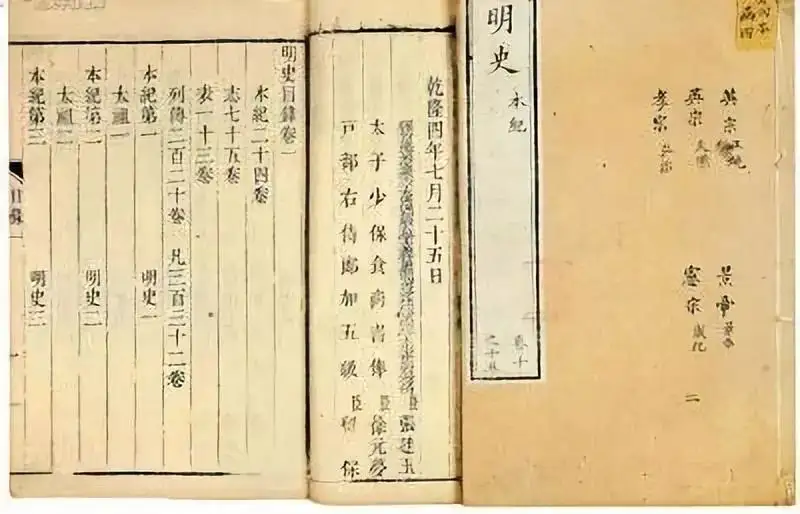 英宗正統 景帝景泰
英宗天順 憲宗成化 二
孝宗弘治
明史 本紀
卷十
之十五
乾隆四年七月二十五日
臣張廷玉
太子少保食尚書俸臣徐元夢
戶部右侍郎加五級臣留保
明史目錄卷一
本紀二十四卷
志七十五卷
表一十三卷
列傳二百二十卷 凡三百三十二卷
本紀第一 明史一
太祖一
本紀第二 明史二
太祖二
本紀第三 明史三